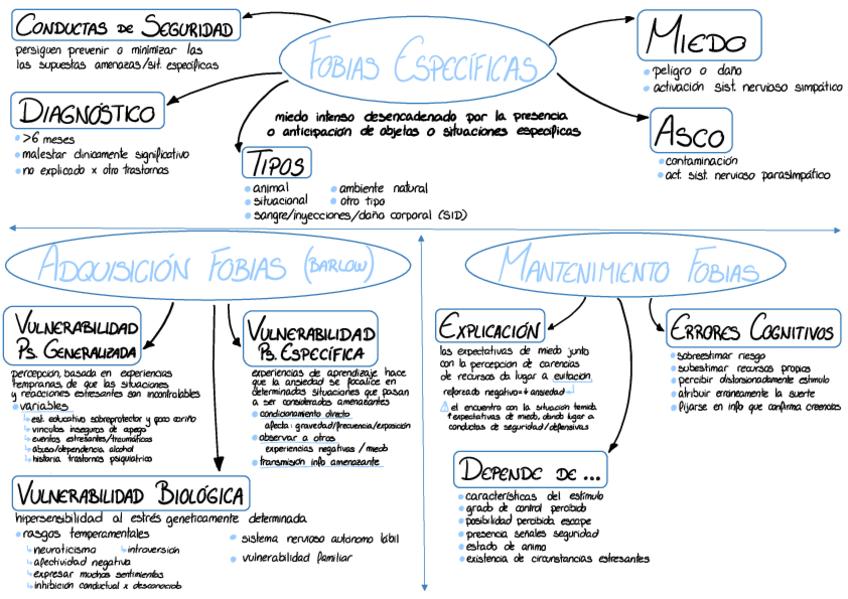 FOBIAS ESPECÍFICAS
miedo intenso desencadenado por la presencia
o anticipación de objetos o situaciones específicas
CONDUCTAS DE SEGURIDAD
persiguen prevenir o minimizar las
las supuestas amenazas/sit. específicas
DIAGNÓSTICO
>6 meses
malestar clinicamente significativo
no explicado x otro trastornos
TIPOS
animal
situacional
sangre/inyecciones/daño corporal (SID)
ambiente natural
otro tipo
MIEDO
peligro o daño
activación sist. nervioso simpático
ASCO
contaminación
act. sist. nervioso parasimpático
ADQUISICIÓN FOBIAS (BARLOW)
VULNERABILIDAD
PS. GENERALIZADA
percepción, basada en experiencias
tempranas, de que las situaciones
y reacciones estresantes son incontrolables
variables
est. educativo sobreprotector y poco cariño
vinculos inseguros de apego
eventos estresantes/traumáticos
abuso/dependencia alcohol
historia trastornos psiquiatrico
VULNERABILIDAD
PS. ESPECÍFICA
experiencias de aprendizaje hace
que la ansiedad se focalice en
determinadas situaciones que pasan
a ser considerados amenazantes
condicionamiento directo
afecta: gravedad/frecuencia/exposición
observar a otros
experiencias negativas / miedo
transmisión info amenazante
VULNERABILIDAD BIOLÓGICA
hipersensibilidad al estrés geneticamente determinada
rasgos temperamentales
neuroticismo
introversión
afectividad negativa
expresar muchos sentimientos
inhibición conductual x desconocido
sistema nervioso autonomo lábil
vulnerabilidad familiar
MANTENIMIENTO FOBIAS
EXPLICACIÓN
las expectativas de miedo junto
con la percepcion de carencias
de recursos da lugar a evitación
reforzado negativo=↓ansiedad
⚠ el encuentro con la situacion temida
↑expectativas de miedo, dando lugar a
conductas de seguridad/defensivas
ERRORES COGNITIVOS
sobreestimar riesgo
subestimar recursos propios
percibir distorsionadamente estimulo
atribuir erroneamente la suerte
fijarse en info que confirma creencias
DEPENDE DE ...
características del estímulo
grado de control percibido
posibilidad percibida escape
presencia señales seguridad
estado de animo
existencia de circunstancias estresantes